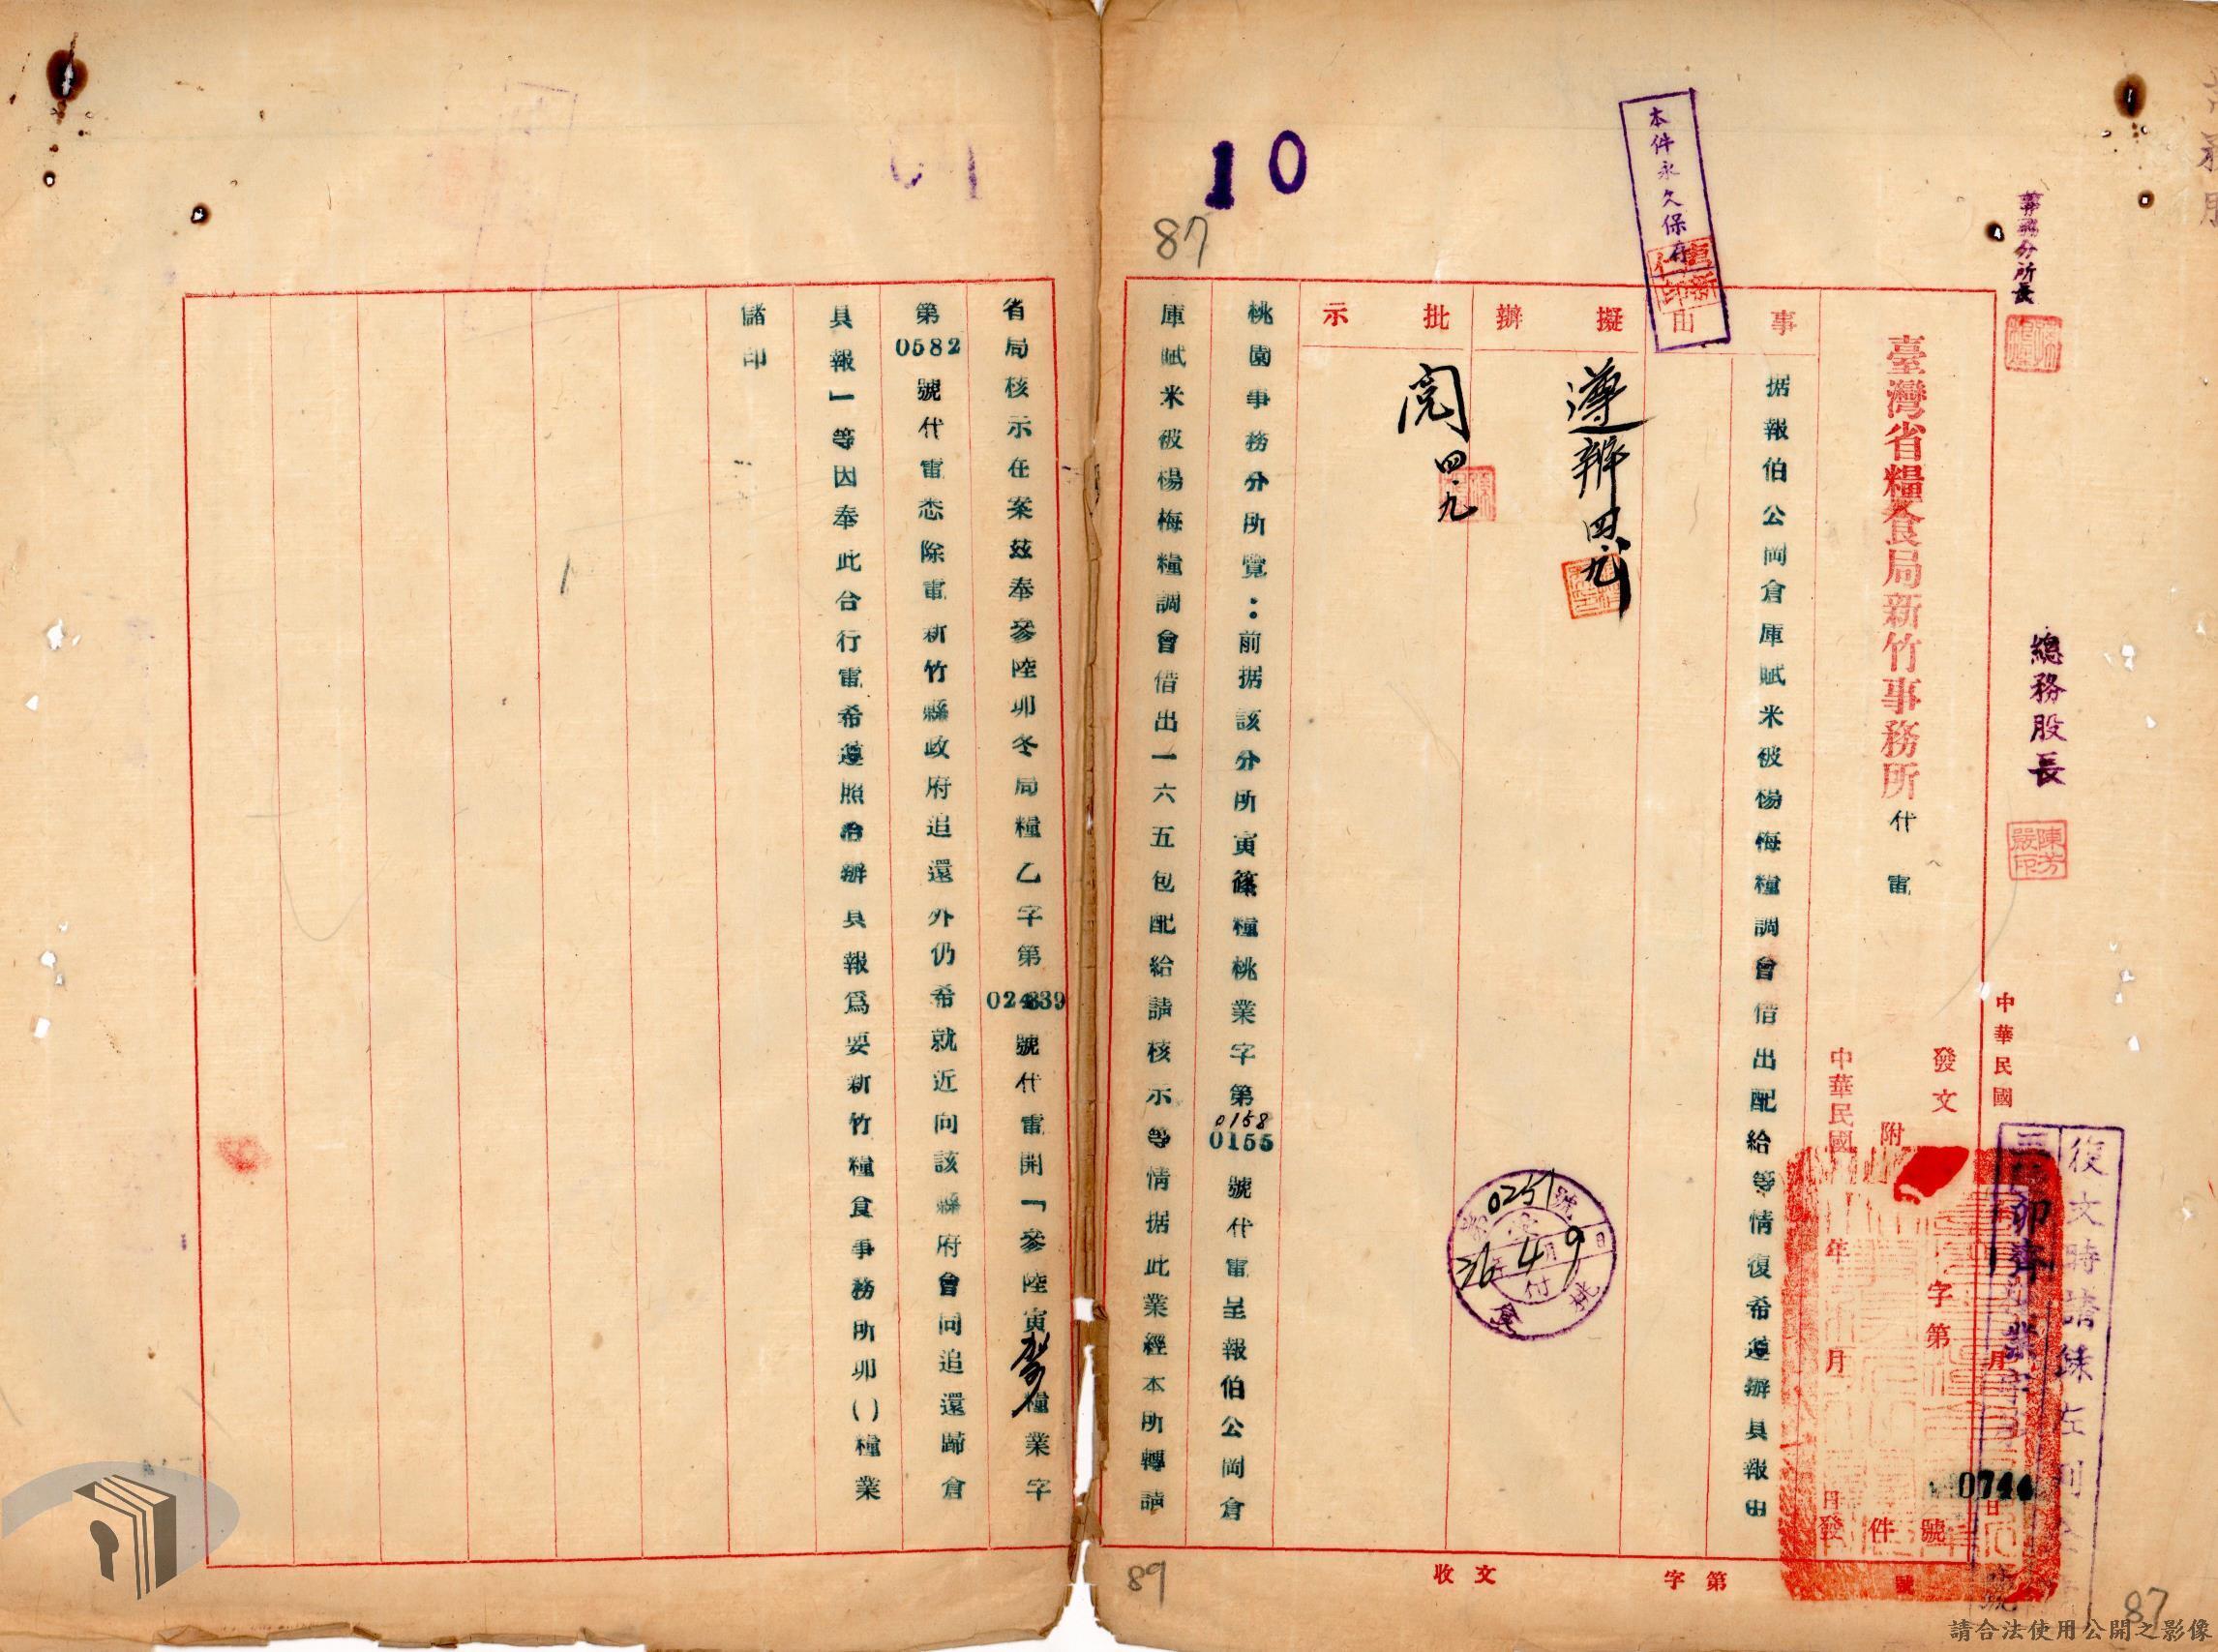 業務分所長
總務股長
本件永久保存
10
87
中華民國
臺灣省糧食局新竹事務所代電
發文
字第
0744
號
附
件
中華民國
年
月
日發
復文時請錄左列
事由
据報伯公岡倉庫賦米被楊梅糧調會借出配給等情復希遵辦具報由
擬辦
遵辦 四.九
批示
閱 四.九
第0251號
收
36年4月9日
付
桃
食
桃園事務分所覽：前据該分所寅篠糧桃業字第0155號代電呈報伯公岡倉
0158
庫賦米被楊梅糧調會借出一六五包配給請核示等情据此業經本所轉請
省局核示在案茲奉參陸卯冬局糧乙字第02439號代電開「參陸寅糧業字
第0582號代電悉除電新竹縣政府追還外仍希就近向該縣府會同追還歸倉
具報」等因奉此合行電希遵照洽辦具報爲要新竹糧食事務所卯()糧業
儲印
收文
字第
號
89
87
請合法使用公開之影像